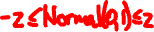 -z ≤ Normal(0,1) ≤ z